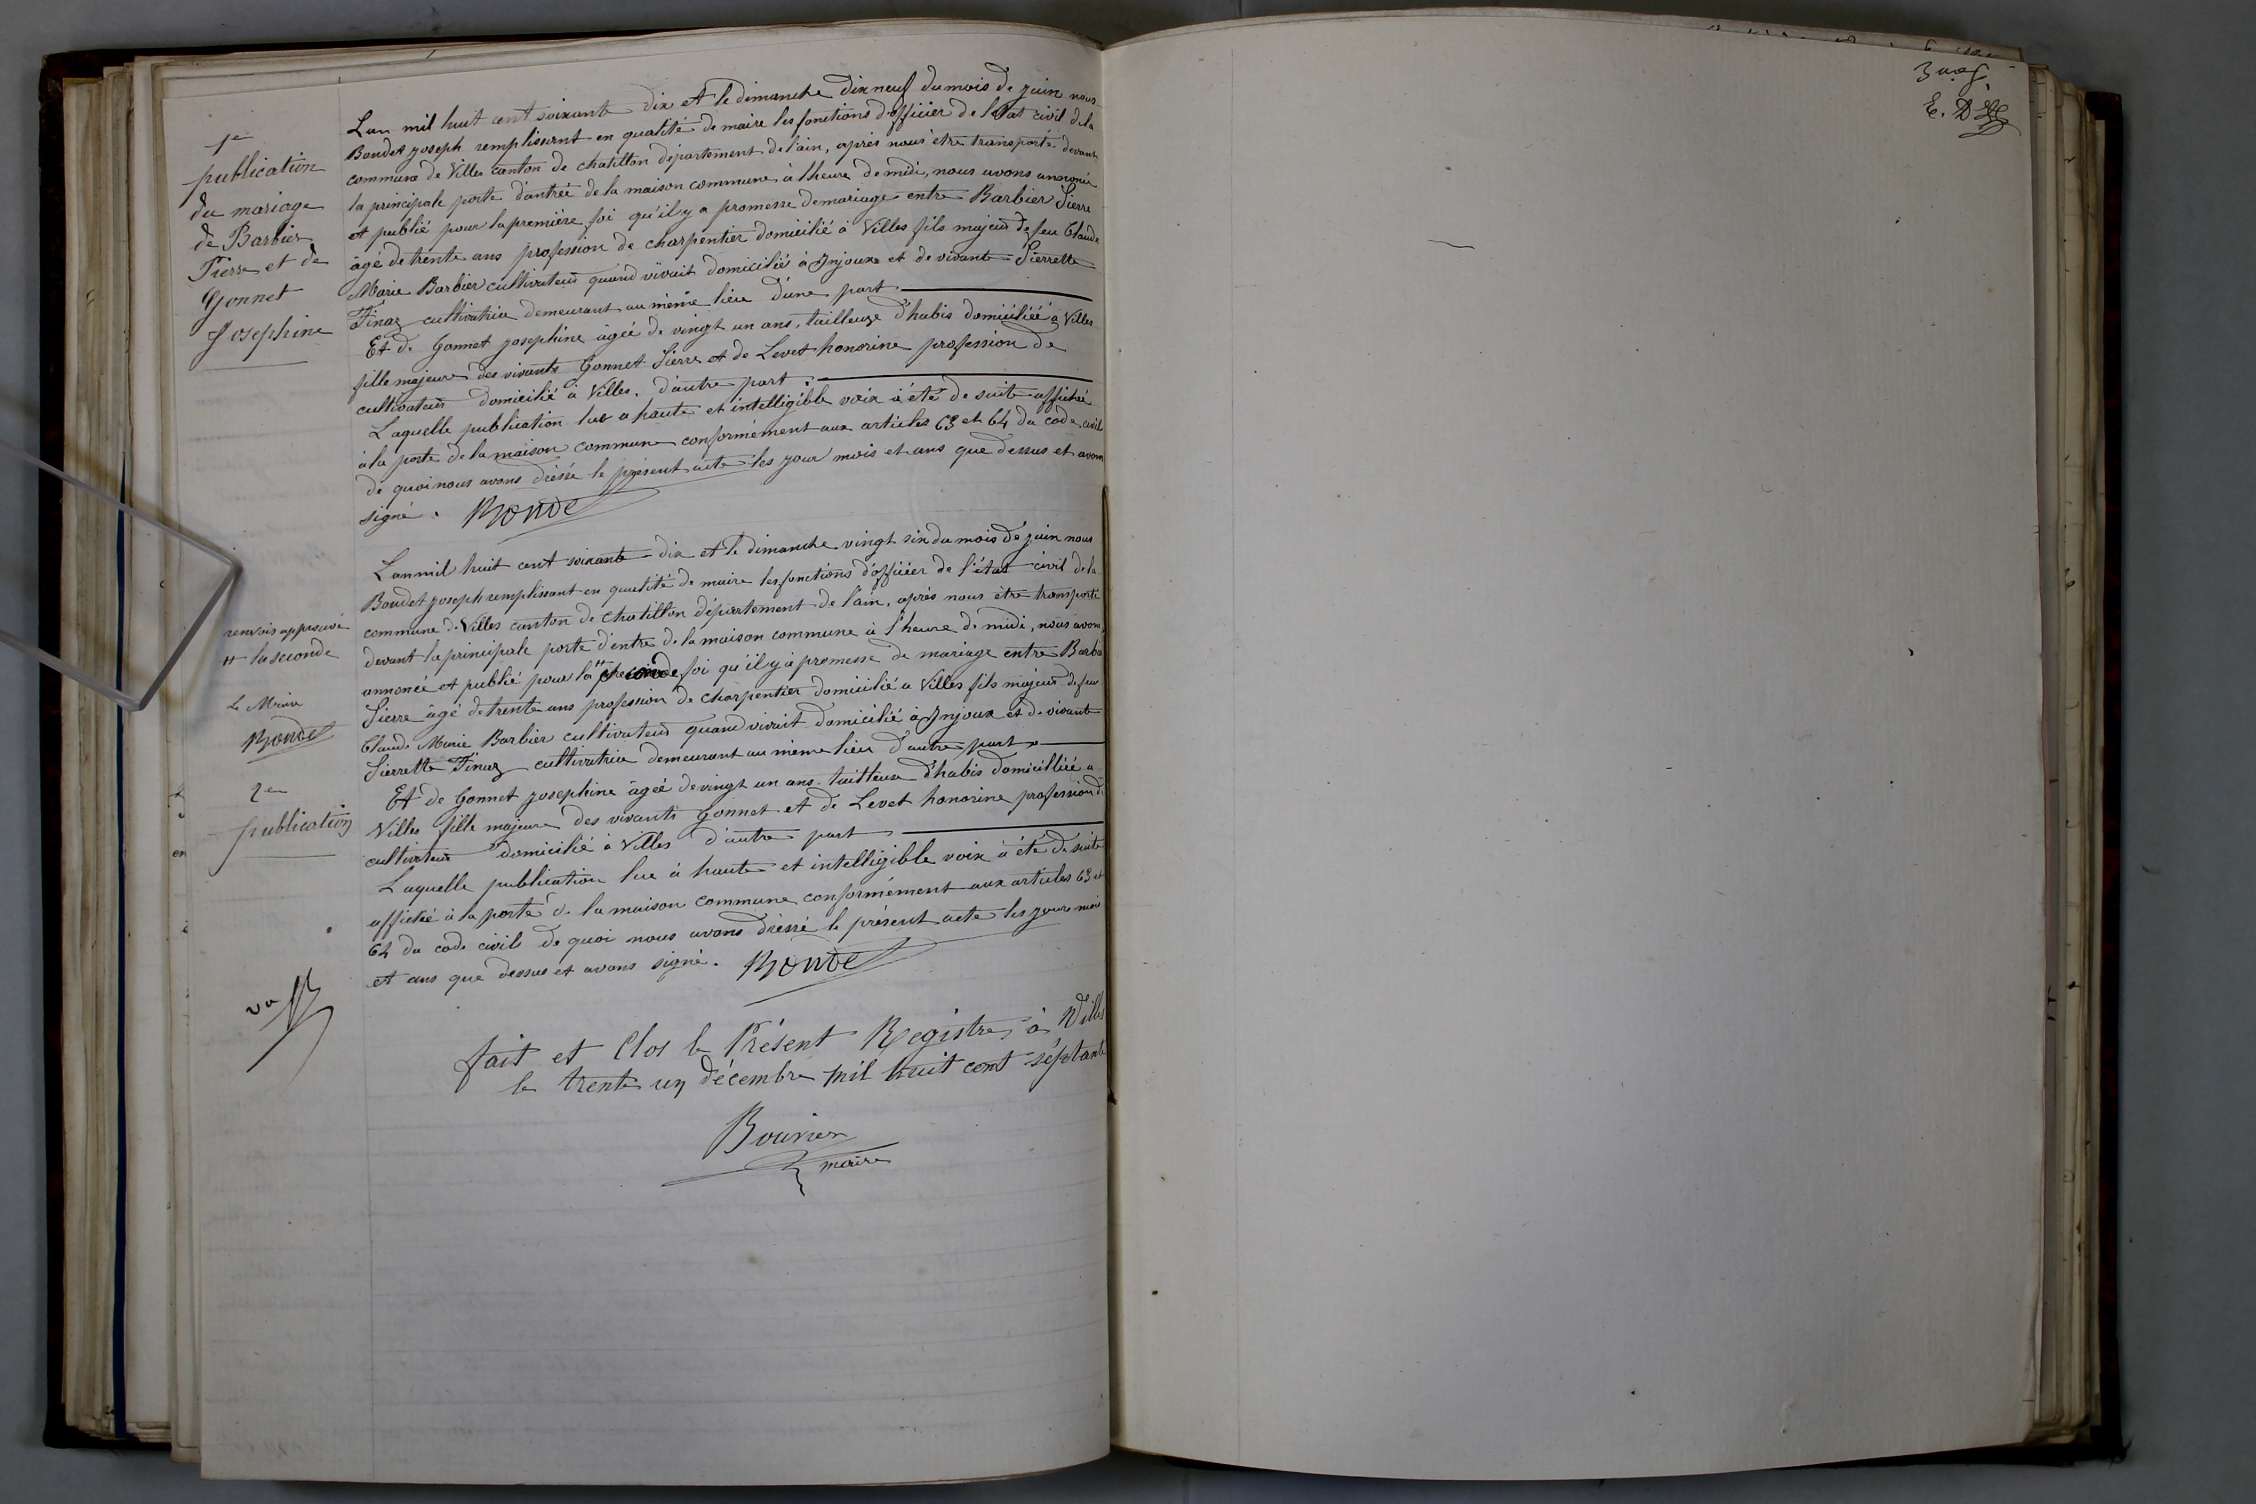 1e
publication
du mariage
de Barbier
Pierre et de
Gonnet
Josephine
L'an mil huit cent soixante dix et le dimanche dix neuf du mois de juin nous
Bondet joseph remplissant en qualité de maire les fonctions d'officier de l'état civil de la
commune de Villes canton de chatillon département de l'ain, après nous être transporté devant
la principale porte d'antrée de la maison commune à l'heure de midi, nous avons annoncé
et publié pour la première foi qu'il y a promesse de mariage entre Barbier Pierre
âgé de trente ans profession de charpentier domicilié à Villes fils majeur de feu Claude
Marie Barbier cultivateur quand vivait domicilié à Injoux et de vivante Pierrette
Tinaz cultivatrice demeurant au même lieu d'une part
Et de Gonnet josephine âgée de vingt un ans, tailleuze d'habis domiciliéé à Villes
fille majeure des vivants Gonnet Pierre et de Levet honorine profession de
cultivateur domicilié à Villes. d'autre part
Laquelle publication lue a haute et intelligible voix à été de suite affichée
à la porte de la maison commune conformément aux articles 63 et 64 du code civil
de quoi nous avons dressé le présent acte les jour mois et ans que dessus et avons
signé. Bondet
L'an mil huit cent soixante dix et le dimanche vingt six du mois de juin nous
Bondet joseph remplissant en qualité de maire les fonctions d'officier de l'état civil de la
commune de Villes canton de chatillon département de l'ain, après nous être transporté
devant la principale porte d'entre de la maison commune à l'heure de midi, nous avons
annoncé et publié pour la seconde foi qu'il y à promesse de mariage entre Barbier
Pierre âgé de trente ans profession de charpentier domicilié a Villes fils majeur de feu
Claude Marie Barbier cultivateur quand vivait domicilié à Injoux et de vivante
Pierrette Tinaz cultivatrice demeurant au même lieu d'autre part
Et de Gonnet josephine âgéé de vingt un ans tailleuse d'habis domicilliéé a
Villes fille majeure des vivants Gonnet et de Levet honorine profession de
cultivateur domicilié à Villes d'autre part
Laquelle publication lue à haute et intelligible voix à été de suite
affichéé à la porté de la maison commune conformément aux articles 63 et
64 du code civil de quoi nous avons dressé le présent acte les jour mois
et ans que dessus et avons signé. Bondet
renvois approuvé
# la seconde
Le Maire
Bondet
2e
publication
vu
fait et Clos le Présent Registre à Villes
le trente un décembre mil huit cent séptante
Bouvier
maire